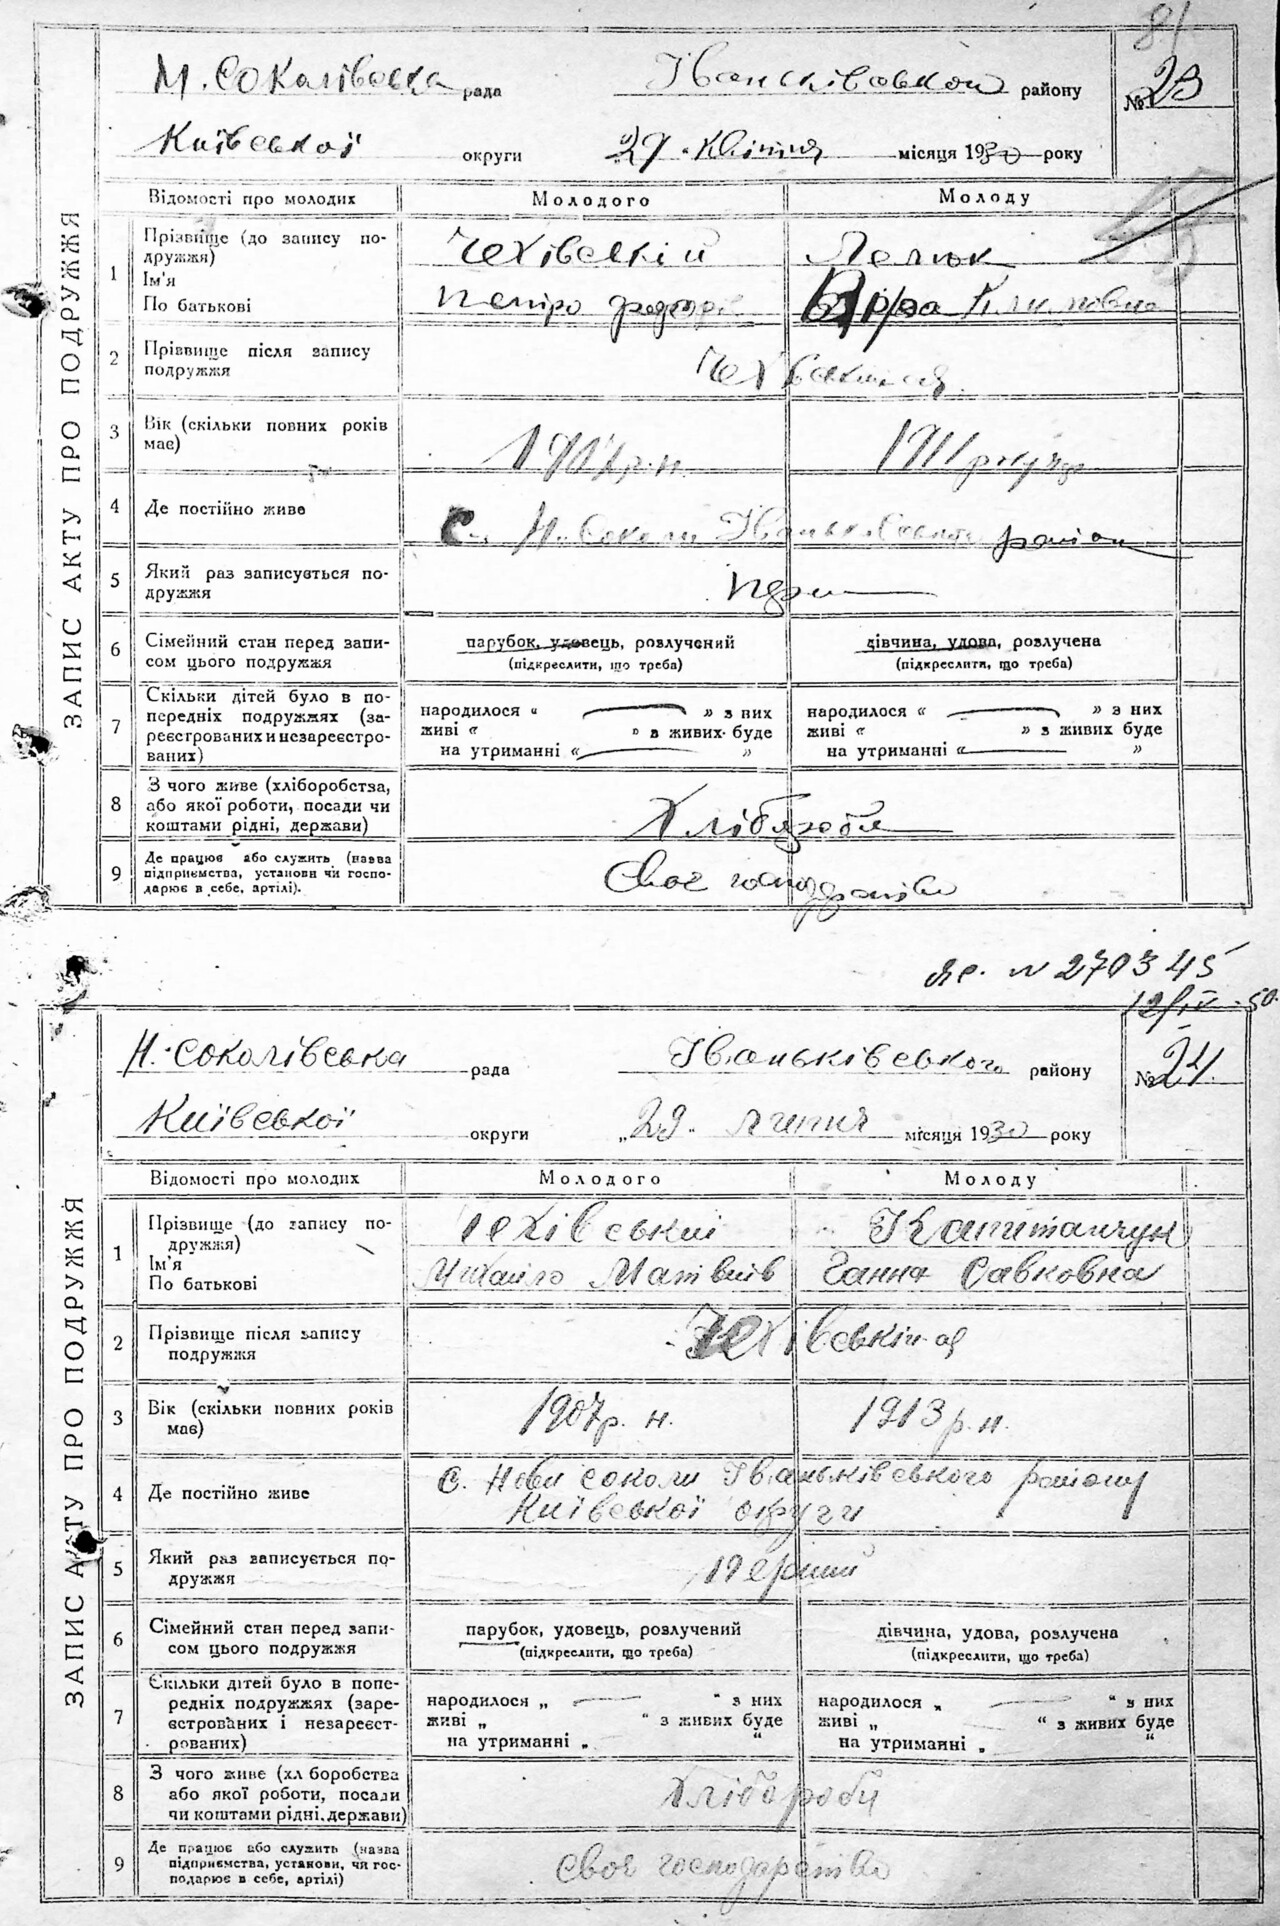 81
Н. Соколівська рада Іваньківської району № 23
Київської округи 29 квітня місяця 1930 року
ЗАПИС АКТУ ПРО ПОДРУЖЖЯ
Відомості про молодих Молодого Молоду
1 Прізвище (до запису по-
дружжя)
Ім'я
По батькові
Чехівський
Петро
Лелюк
Климовна
2 Прізвище після запису
подружжя
3 Вік (скільки повних років
має)
1911
4 Де постійно живе
с. Н. Соколи Іваньківськ. район
5 Який раз записується по-
дружжя
6 Сімейний стан перед запи-
сом цього подружжя
парубок, удовець, розлучений
(підкреслити, що треба)
дівчина, удова, розлучена
(підкреслити, що треба)
7 Скільки дітей було в по-
передніх подружжях (за-
реєстрованих и незареєстро-
ваних)
народилося „ " з них
живі „ " з живих буде
на утриманні „ "
народилося „ " з них
живі „ " з живих буде
на утриманні „ "
8 З чого живе (хліборобства,
або якої роботи, посади чи
коштами рідні, держави)
9 Де працює або служить (назва
підприємства, установи чи госпо-
дарює в себе, артілі).
Своє господарство
№ 270345
12/IV-50.
Н. Соколівська рада Іваньківського району № 24.
Київської округи „29" липня місяця 1930 року
ЗАПИС АКТУ ПРО ПОДРУЖЖЯ
Відомості про молодих Молодого Молоду
1 Прізвище (до запису по-
дружжя)
Ім'я
По батькові
Чехівський
Михайло Матвіїв
Капитанчук
Ганна Савковна
2 Прізвище після запису
подружжя
Чехівські
3 Вік (скільки повних років
має)
1907 р. н. 1913 р. н.
4 Де постійно живе
с. Нові Соколи Іваньківського району
Київської округи
5 Який раз записується по-
дружжя
Перший
6 Сімейний стан перед запи-
сом цього подружжя
парубок, удовець, розлучений
(підкреслити, що треба)
дівчина, удова, розлучена
(підкреслити, що треба)
7 Скільки дітей було в попе-
редніх подружжях (заре-
єстрованих і незареєст-
рованих)
народилося „ " з них
живі „ " з живих буде
на утриманні „ "
народилося „ " з них
живі „ " з живих буде
на утриманні „ "
8 З чого живе (хл боробства
або якої роботи, посади
чи коштами рідні, держави)
Хлібороби
9 Де працює або служить (назва
підприємства, установи, чи гос-
подарює в себе, артілі)
Своє господарство